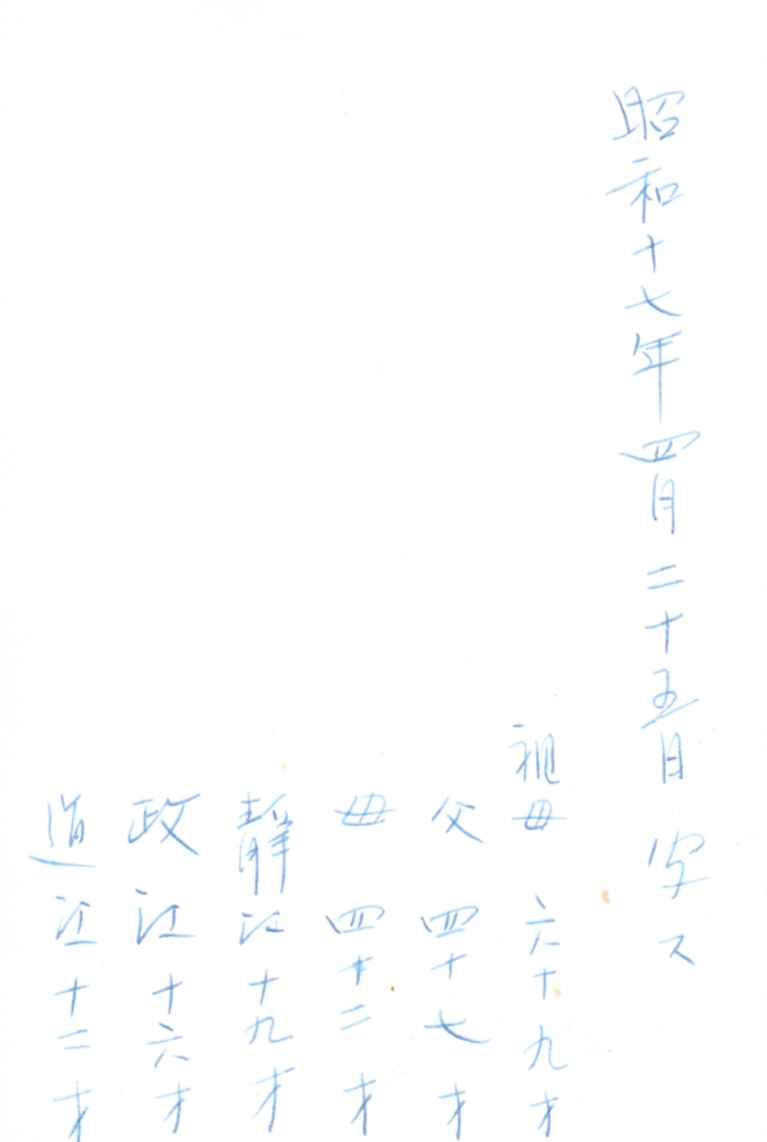 昭和十七年四月二十五日 写ス
祖母 六十九才
父 四十七才
母 四十二才
静江十九才
政江十六才
道江十二才